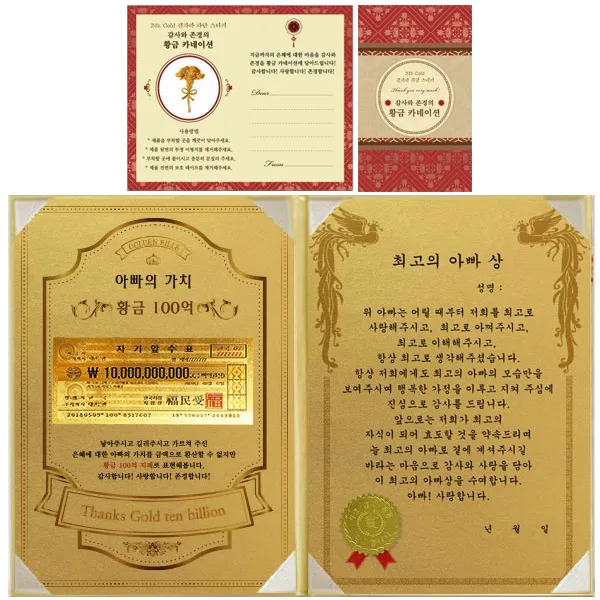 24k Gold 전자파 차단 스티커
감사와 존경의
황금 카네이션
사용방법
* 제품을 부착할 곳을 깨끗이 닦아주세요.
* 제품 뒷면의 투명 이형지를 제거해주세요.
* 부착할 곳에 붙이시고 충분히 문질러 주세요.
* 제품 전면의 보호 테이프를 제거해주세요.
지금까지의 은혜에 대한 마음을 감사와
존경을 황금 카네이션에 담아드립니다!
감사합니다! 사랑합니다! 존경합니다!
Dear
From
24k Gold
전자파 차단 스티커
Thank you very much!
감사와 존경의
황금 카네이션
GOLDEN BILLS
아빠의 가치
황금 100억
자기앞수표
₩ 10,000,000,000
福民受
낳아주시고 길러주시고 가르쳐 주신
은혜에 대한 아빠의 가치를 금액으로 환산할 수 없지만
황금 100억 지폐로 표현해봅니다.
감사합니다! 사랑합니다! 존경합니다!
Thanks Gold ten billion
최고의 아빠 상
성명 :
위 아빠는 어릴 때부터 저희를 최고로
사랑해주시고, 최고로 아껴주시고,
최고로 이해해주시고,
항상 최고로 생각해주셨습니다.
항상 저희에게도 최고의 아빠의 모습만을
보여주시며 행복한 가정을 이루고 지켜 주심에
진심으로 감사를 드립니다.
앞으로는 저희가 최고의
자식이 되어 효도할 것을 약속드리며
늘 최고의 아빠로 곁에 계셔주시길
바라는 마음으로 감사와 사랑을 담아
이 최고의 아빠상을 수여합니다.
아빠! 사랑합니다.
년 월 일